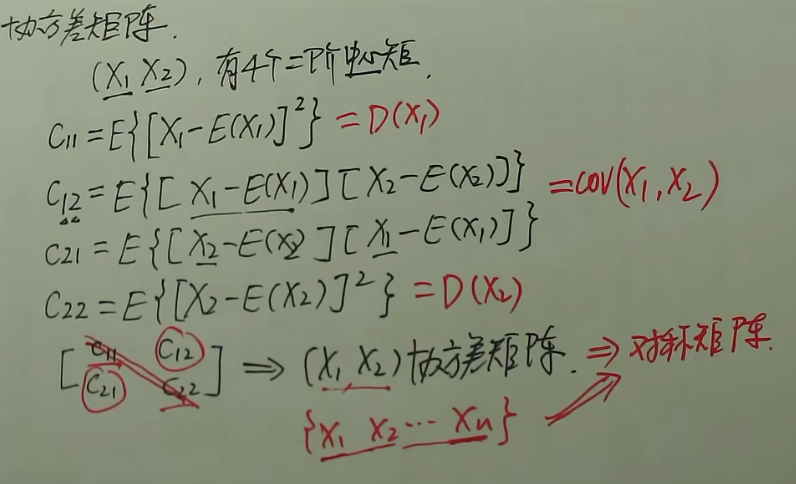 协方差矩阵.
(X₁ X₂), 有4个二阶中心矩.
C₁₁=E{[X₁-E(X₁)]²} =D(X₁)
C₁₂=E{[X₁-E(X₁)][X₂-E(X₂)]} =COV(X₁,X₂)
C₂₁=E{[X₂-E(X₂][X₁-E(X₁)]}
C₂₂=E{[X₂-E(X₂)]²} =D(X₂)
[C₁₁ C₁₂
C₂₁ C₂₂] ⇒ (X₁,X₂)协方差矩阵. ⇒对称矩阵.
{X₁ X₂…Xn}